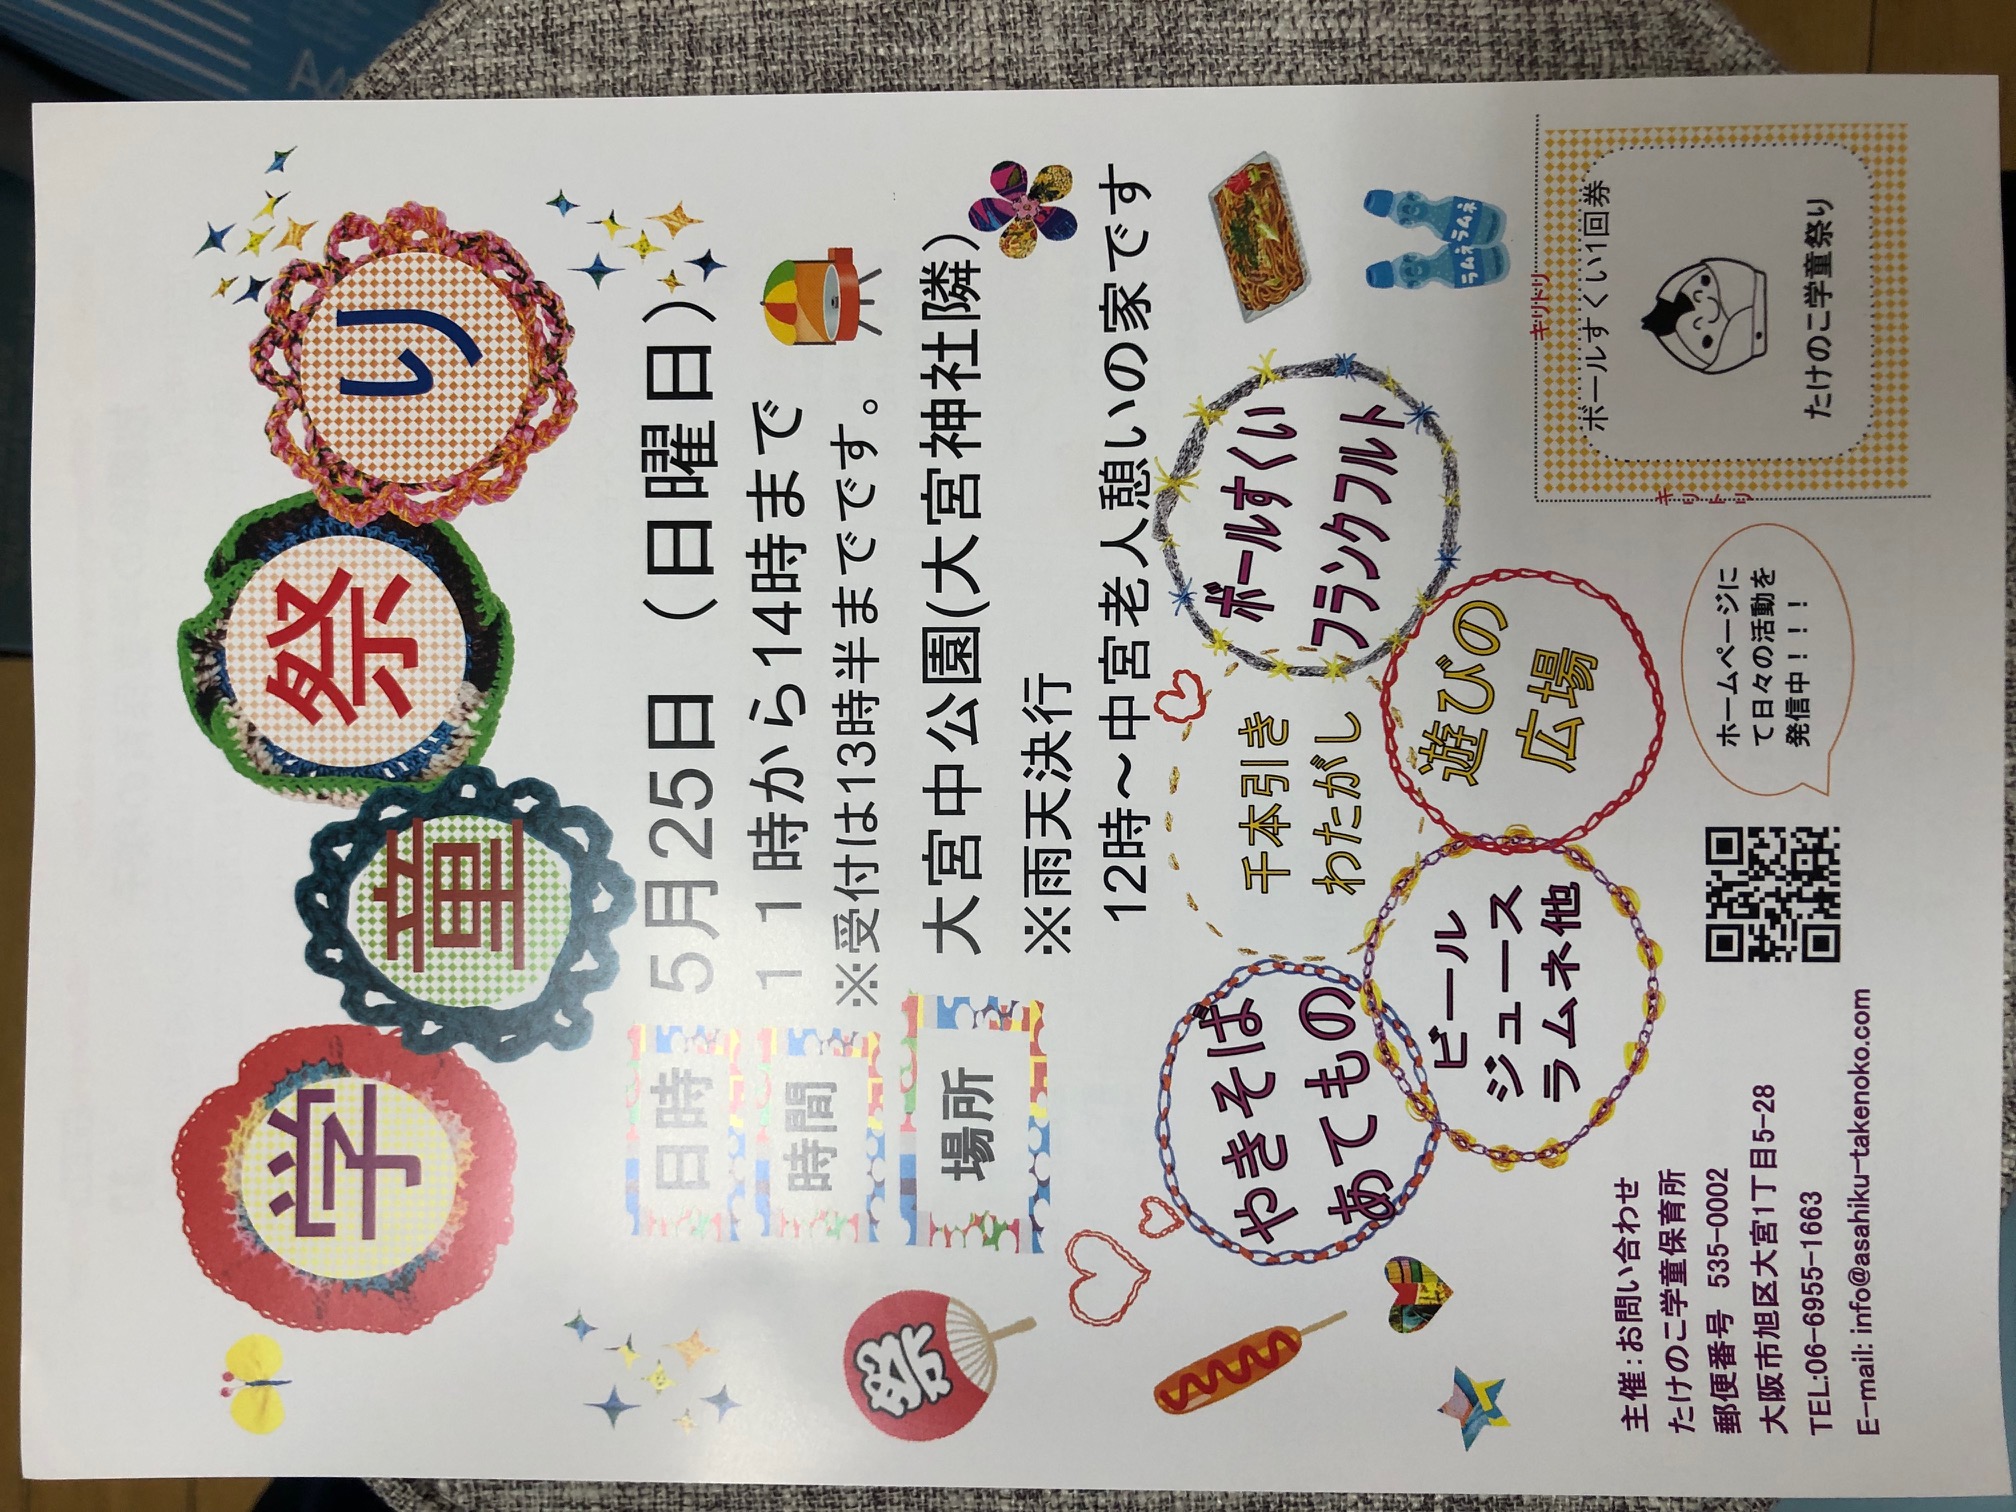 学童祭り
日時
5月25日（日曜日）
時間
11時から14時まで
※受付は13時半までです。
場所
大宮中公園(大宮神社隣)
※雨天決行
12時～中宮老人憩いの家です
祭
やきそば
あてもの
千本引き
わたがし
ボールすくい
フランクフルト
ビール
ジュース
ラムネ他
遊びの
広場
ラムネ
ラムネ
主催:お問い合わせ
たけのこ学童保育所
郵便番号 535-0002
大阪市旭区大宮1丁目5-28
TEL:06-6955-1663
E-mail: info@asahiku-takenoko.com
ホームページに
て日々の活動を
発信中！！！
キリトリ
キリトリ
ボールすくい1回券
たけのこ学童祭り
A4